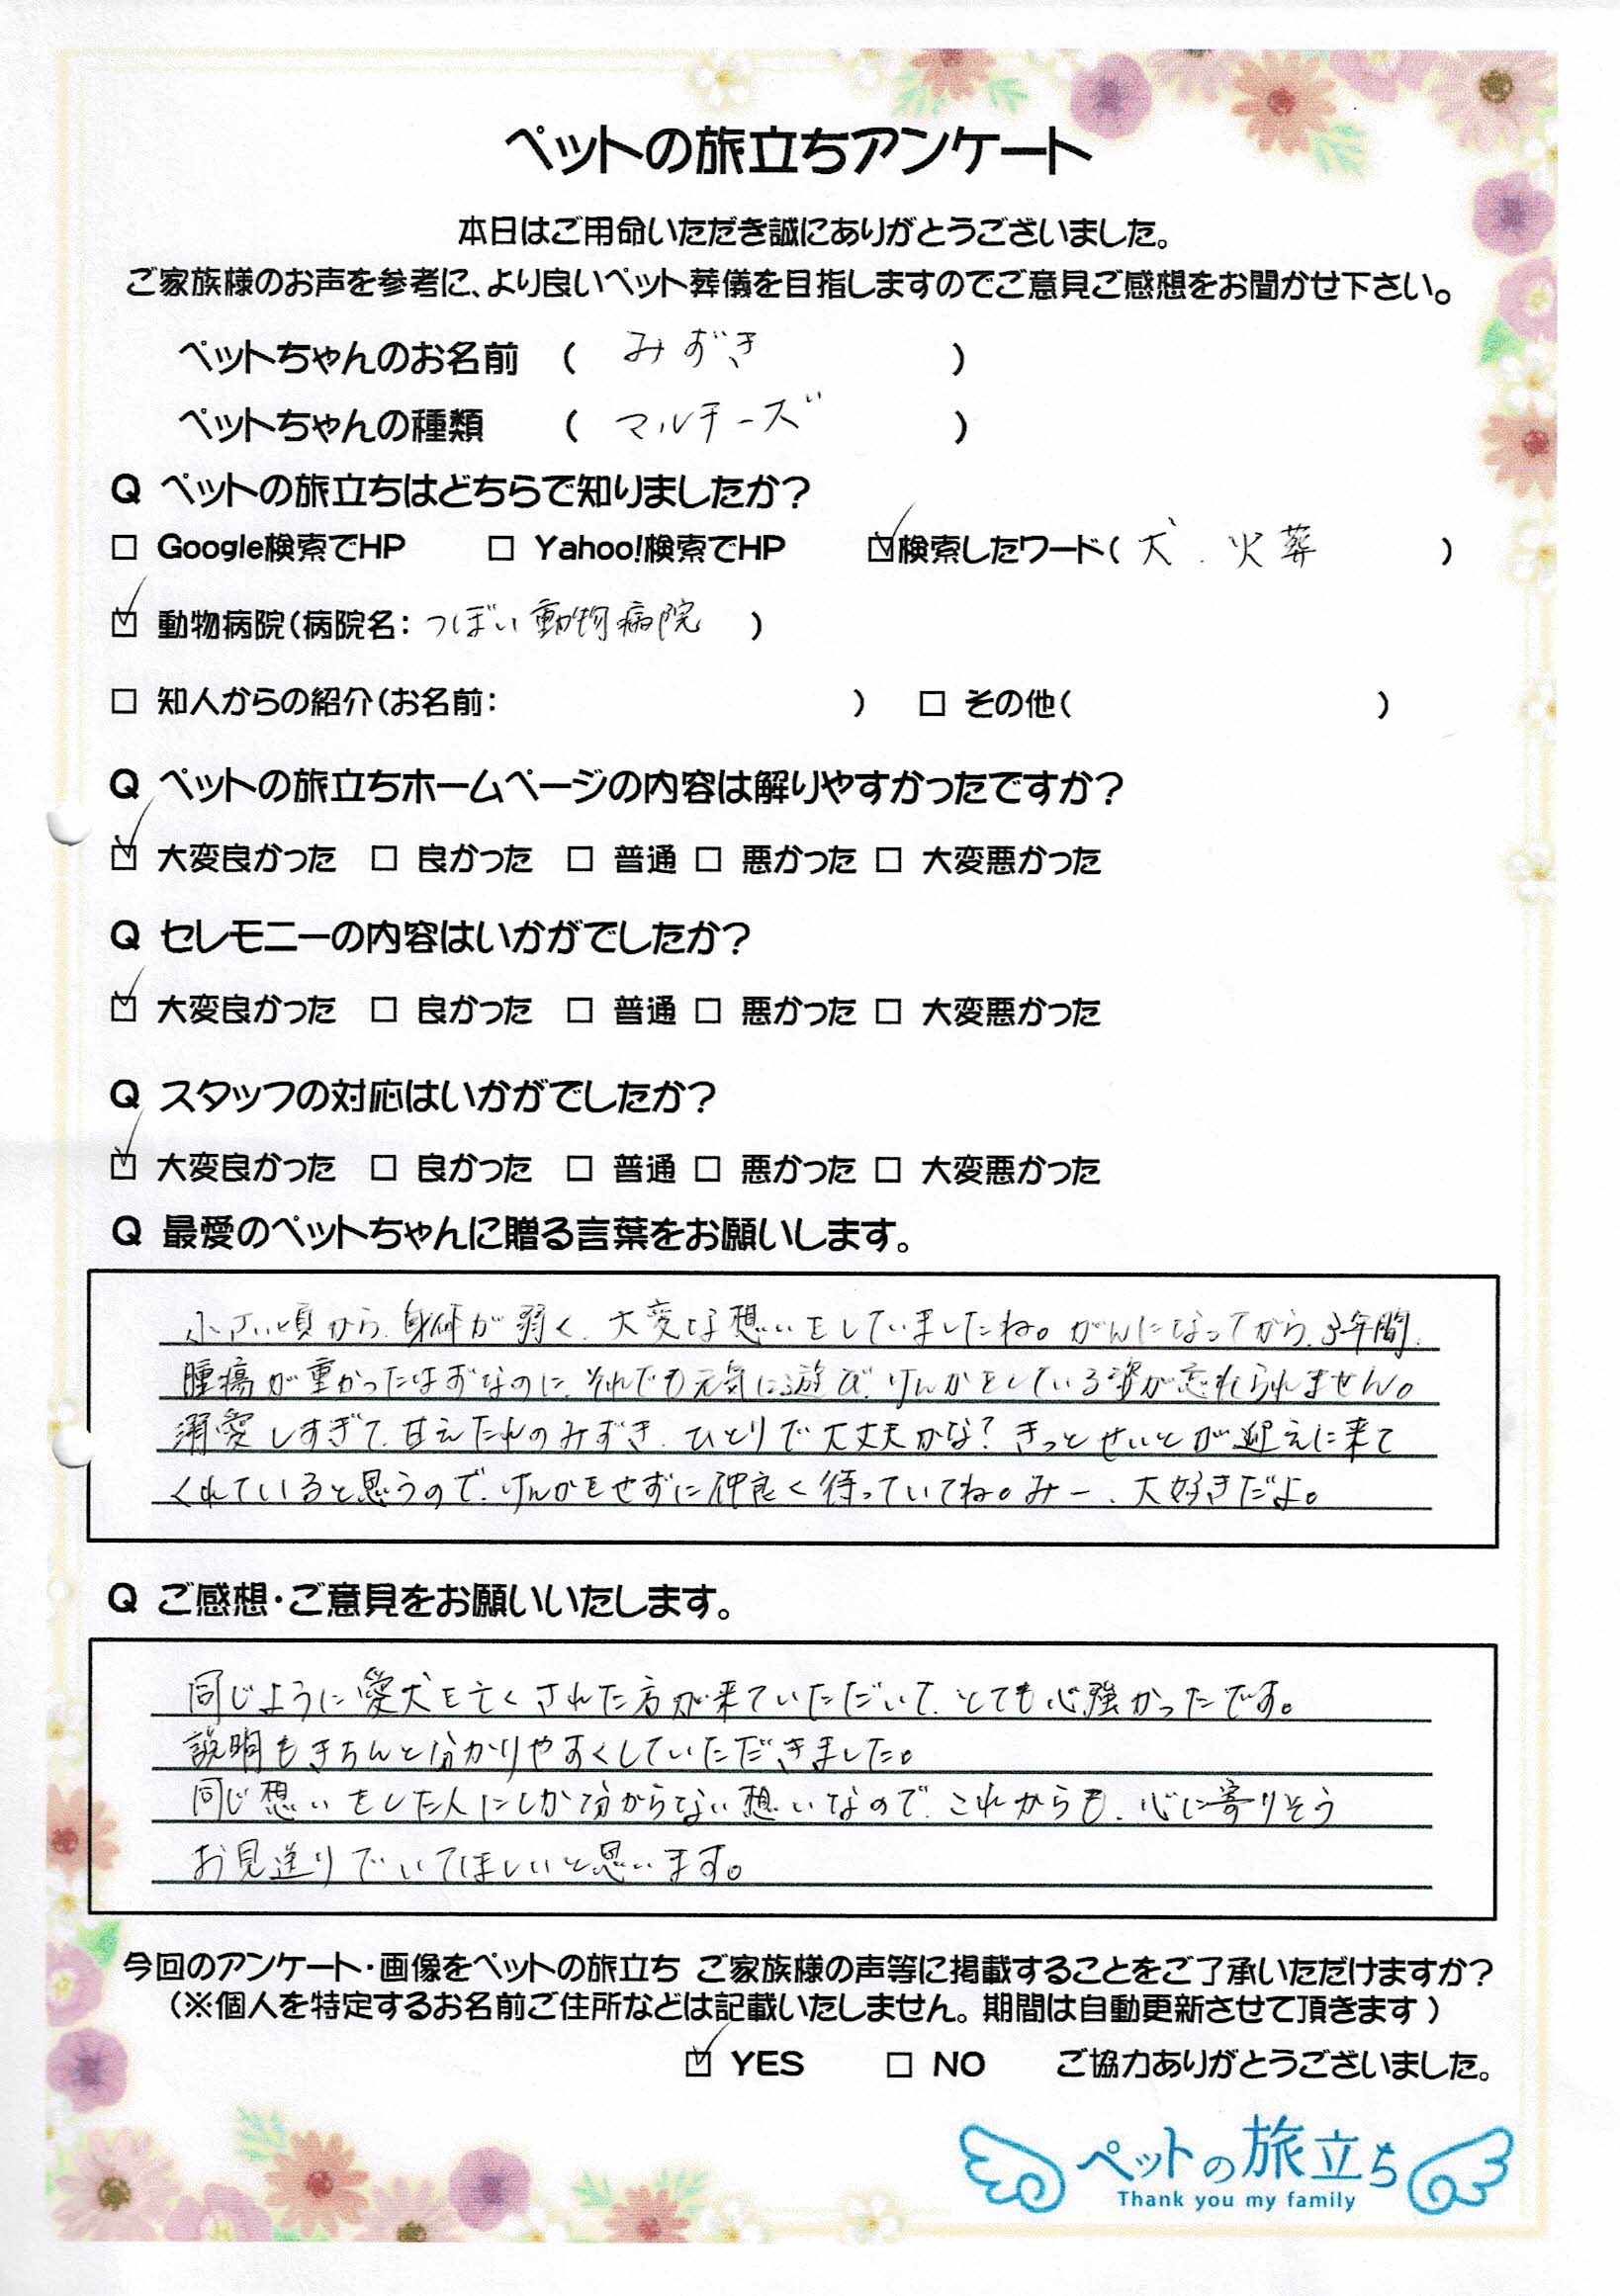 ペットの旅立ちアンケート
本日はご用命いただき誠にありがとうございました。
ご家族様のお声を参考に、より良いペット葬儀を目指しますのでご意見ご感想をお聞かせ下さい。
ペットちゃんのお名前 ( みずき )
ペットちゃんの種類 ( マルチーズ )
Q ペットの旅立ちはどちらで知りましたか?
□ Google検索でHP □ Yahoo!検索でHP ☑検索したワード( 犬、火葬 )
☑ 動物病院(病院名: つぼい動物病院 )
□ 知人からの紹介(お名前: ) □ その他( )
Q ペットの旅立ちホームページの内容は解りやすかったですか?
☑ 大変良かった □ 良かった □ 普通 □ 悪かった □ 大変悪かった
Q セレモニーの内容はいかがでしたか?
☑ 大変良かった □ 良かった □ 普通 □ 悪かった □ 大変悪かった
Q スタッフの対応はいかがでしたか?
☑ 大変良かった □ 良かった □ 普通 □ 悪かった □ 大変悪かった
Q 最愛のペットちゃんに贈る言葉をお願いします。
小さい頃から、身体が弱く、大変な想いをしていましたね。がんになってから、3年間、
腫瘍が重かったはずなのに、それでも元気に遊び、けんかをしている姿が忘れられません。
溺愛しすぎて、甘えたれのみずき、ひとりで大丈夫かな?きっとせいとが迎えに来て
くれていると思うので、けんかをせずに仲良く待っていてね。みー、大好きだよ。
Q ご感想・ご意見をお願いいたします。
同じように愛犬を亡くされた方が来ていただいて、とても心強かったです。
説明もきちんと分かりやすくしていただきました。
同じ想いをした人にしか分からない想いなので、これからも、心に寄りそう
お見送りでいてほしいと思います。
今回のアンケート・画像をペットの旅立ち ご家族様の声等に掲載することをご了承いただけますか?
(※個人を特定するお名前ご住所などは記載いたしません。期間は自動更新させて頂きます)
☑ YES □ NO ご協力ありがとうございました。
ペットの旅立ち
Thank you my family